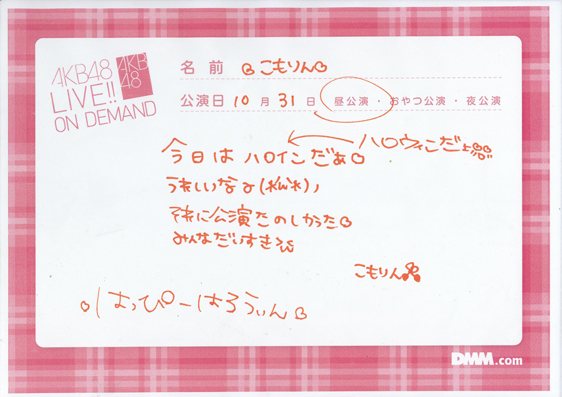 AKB48
LIVE!!
ON DEMAND
AKB
48
名前 こもりん
公演日 10月31日 昼公演・おやつ公演・夜公演
今日はハロインだぁ ハロウィンだよ
うれしいなぁ
それに公演たのしかった
みんなだいすき
こもりん
はっぴーはろうぃん
DMM.com